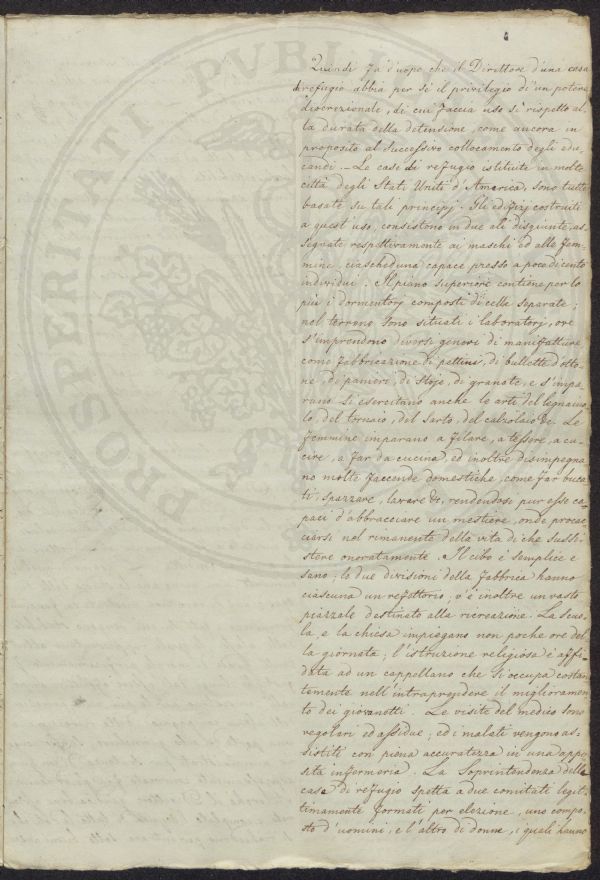 Quindi fa d'uopo che il Direttore d'una casa
di refugio abbia per sè il privilegio d'un potere
discrezionale, di cui faccia uso sì rispetto al-
la durata della detensione, come ancora in
proposito al successivo collocamento degli edu-
candi. - Le case di refugio istituite in molte
città degli Stati Uniti d'America, sono tutte
basate su tali principj. Gli edifizj costruiti
a quest'uso, consistono in due ali disgiunte, as-
segnate respettivamente ai maschi ed alle fem-
mine, ciascheduna capace presso a poco di cento
individui. Il piano superiore contiene per lo
più i dormentorj composti di celle separate;
nel terreno sono situati i laboratorj, ove
s'imprendono diversi generi di manifatture
come fabbricazione di pettini, di bullette d'otto-
ne, di panieri, di stoje, di granate, e s'impa-
rano. Si esercitano anche le arti del legnaiuo-
lo, del tornaio, del sarto, del calzolaio &c. Le
femmine imparano a filare, a tessere, a cu-
cire, a far da cucina, ed inoltre disimpegna-
no molte faccende domestiche, come far buca-
ti, spazzare, lavare &c, rendendosi pur esse ca-
paci d'abbracciare un mestiere, onde procac-
ciarsi nel rimanente della vita di che sussi-
stere onoratamente. Il cibo è semplice e
sano; le due divisioni della fabbrica hanno
ciascuna un refettorio; v'è inoltre un vasto
piazzale destinato alla ricreazione. La scuo-
la, e la chiesa impiegano non poche ore del-
la giornata; l'istruzione religiosa è affi-
data ad un cappellano che si occupa costan-
temente nell'intraprendere il miglioramen-
to dei giovanotti. Le visite del medico sono
regolari ed assidue; ed i malati vengono as-
sistiti con piena accuratezza in una appo-
sita infermeria. La Soprintendenza della
casa di refugio spetta a due comitati legit-
timamente formati per elezione, uno compo-
sto d'uomini, e l'altro di donne, i quali hanno
PROSPERITAT PUBLIC